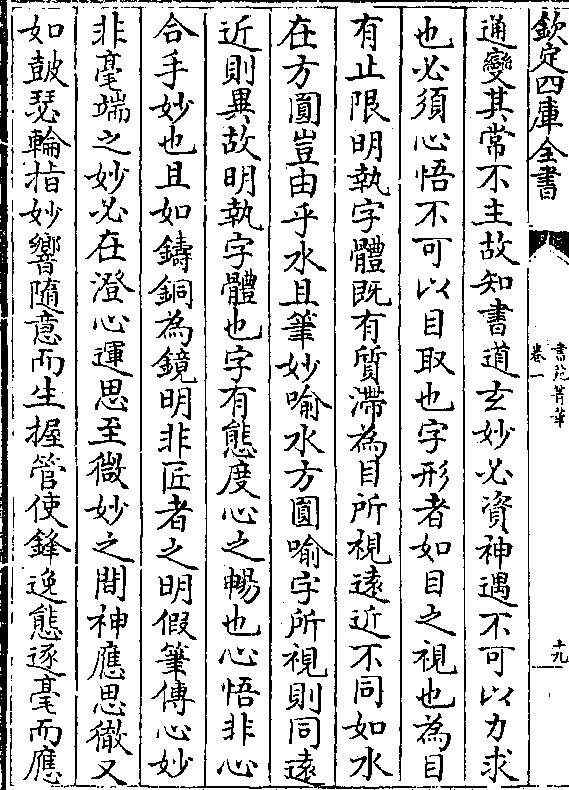 欽定四庫全書
書苑菁華
卷一
十九
通變其常不主故知書道玄妙必資神遇不可以力求
也必須心悟不可以目取也字形者如目之視也為目
有止限明執字體既有質滯為目所視遠近不同如水
在方圓豈由乎水且筆妙喻水方圓喻字所視則同遠
近則異故明執字體也字有態度心之暢也心悟非心
合手妙也且如鑄銅為鏡明非匠者之明假筆傳心妙
非毫端之妙必在澄心運思至微妙之間神應思徹又
如皷瑟輪指妙響隨意而生握管使鋒逸態逐毫而應